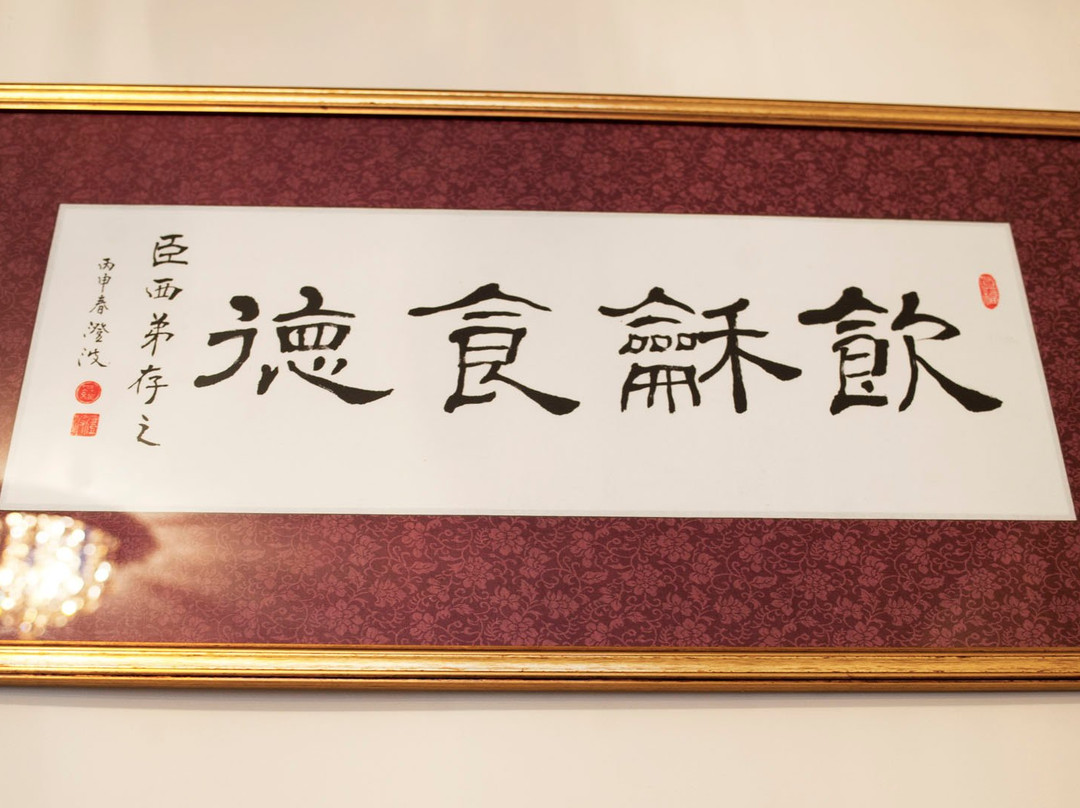 飲龢食德
臣西弟存之
丙申春澄波